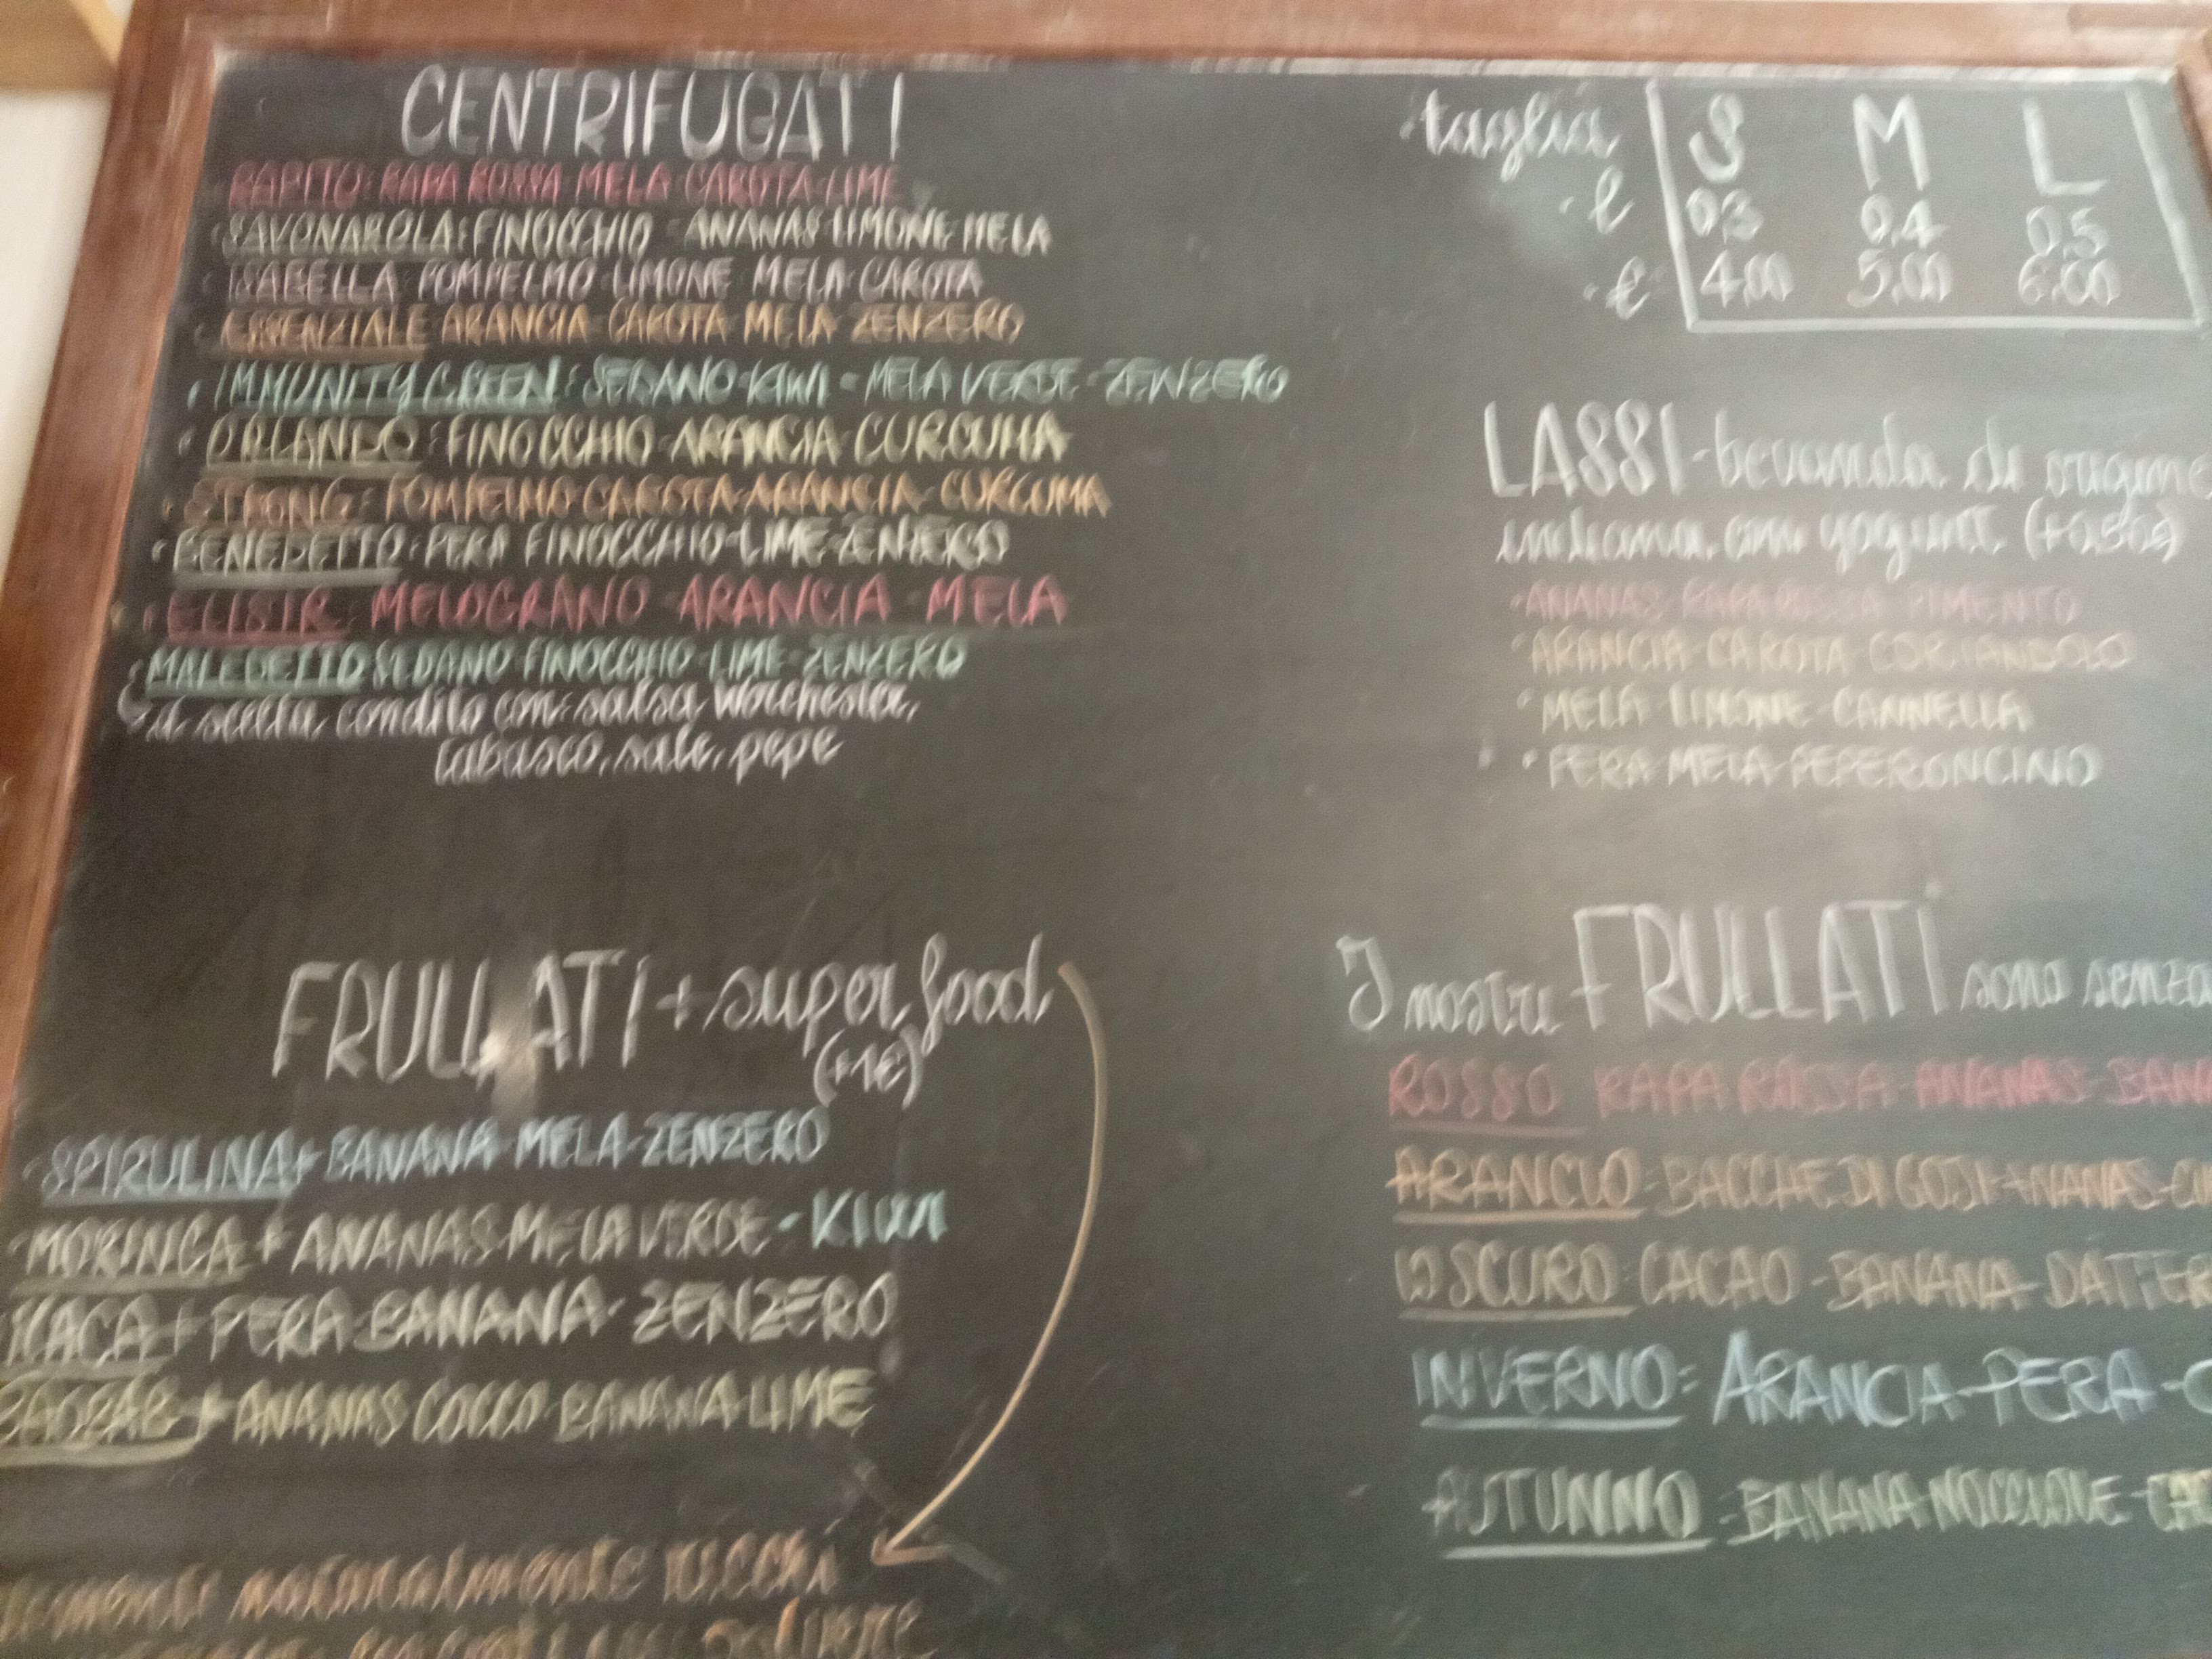 CENTRIFUGATI
RAPITO: RAPA ROSSA MELA-CAROTA-LIME
SAVONAROLA: FINOCCHIO - ANANAS-LIMONE-MELA
ISABELLA POMPELMO-LIMONE MELA-CAROTA
ESSENZIALE ARANCIA CAROTA MELA ZENZERO
IMMUNITY GREEN: SEDANO-KIWI-MELA VERDE-ZENZERO
ORLANDO: FINOCCHIO-ARANCIA-CURCUMA
STRONG: POMPELMO-CAROTA-ARANCIA-CURCUMA
BENEDETTO: PERA FINOCCHIO-LIME-ZENZERO
ELISIR: MELOGRANO-ARANCIA-MELA
MALEDETTO SEDANO FINOCCHIO-LIME-ZENZERO
a scelta condito con: salsa Worchester,
tabasco, sale, pepe
taglia S M L
l 0,3 0,4 0,5
€ 4,00 5,00 6,00
LASSI - bevanda di origine
indiana con yogurt
ANANAS RAPA ROSSA PIMENTO
ARANCIA-CAROTA CORIANDOLO
MELA-LIMONE-CANNELLA
PERA MELA-PEPERONCINO
FRULLATI + super food
(+1€)
SPIRULINA + BANANA-MELA-ZENZERO
MORINGA + ANANAS MELA VERDE-KIWI
+ PERA-BANANA-ZENZERO
BAOBAB + ANANAS COCCO-BANANA-LIME
naturalmente ricchi
I nostri FRULLATI sono senza
ROSSO RAPA ROSSA-ANANAS-BANA
ARANCIO-BACCHE DI GOJI-ANANAS-
SCURO: CACAO-BANANA-DATTER
INVERNO: ARANCIA-PERA-C
AUTUNNO-BANANA-NOCCIOLE-